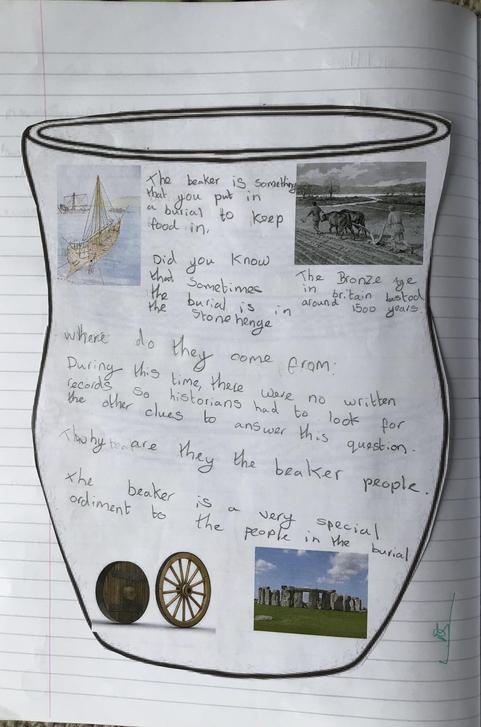 The beaker is something
that you put in
a burial to keep
food in.
Did you know
that sometimes
the burial is in
the Stonehenge
The Bronze ge
in britain lasted
around 1500 years.
where do they come from:
During this time, there were no written
records so historians had to look for
the other clues to answer this question.
why are they the beaker people.
the beaker is a very special
ordiment to the people in the burial